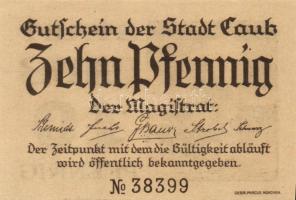 Gutschein der Stadt Caub
Zehn Pfennig
Der Magistrat:
Der Zeitpunkt mit dem die Gültigkeit abläuft
wird öffentlich bekanntgegeben.
№ 38399
GEBR. PARCUS MÜNCHEN.